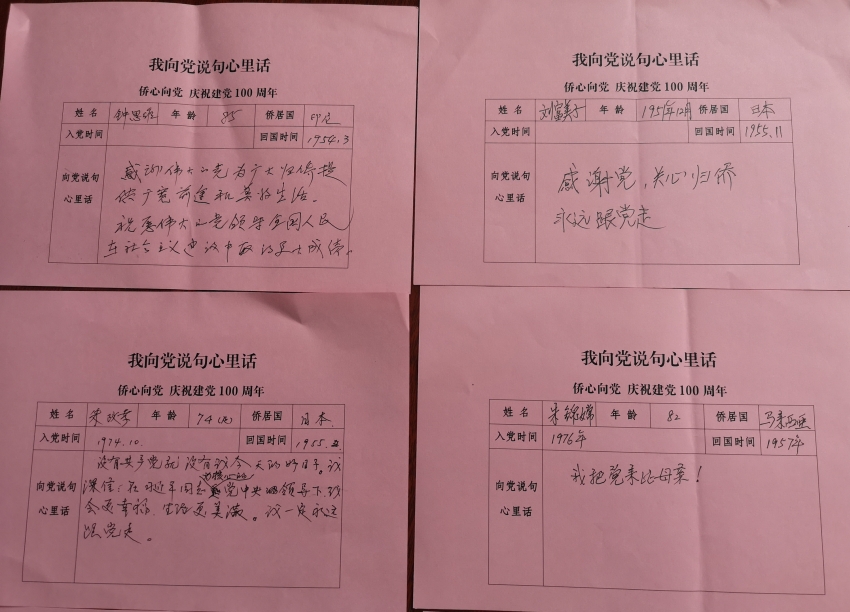 我向党说句心里话
侨心向党 庆祝建党100周年
姓名 钟思 年龄 85 侨居国 印尼
入党时间 回国时间 1954.3
向党说句心里话
感谢伟大的党为广大归侨提
供了宽 前途和美好生活。
祝愿伟大的党领导全国人民
在社会主义建设中取得更大成绩。
我向党说句心里话
侨心向党 庆祝建党100周年
姓名 刘富美子 年龄 1951年12月 侨居国 日本
入党时间 回国时间 1955.11
向党说句心里话
感谢党,关心归侨
永远跟党走
我向党说句心里话
侨心向党 庆祝建党100周年
姓名 年龄 74 侨居国 日本
入党时间 1974.10. 回国时间 1955.
向党说句心里话
没有共产党就没有我今天的好日子。我
深信:在习近平同志为核心的党中央领导下,我
会更幸福,生活更美满。我一定永远
跟党走。
我向党说句心里话
侨心向党 庆祝建党100周年
姓名 朱锦嫦 年龄 82 侨居国 马来西亚
入党时间 1976年 回国时间 1957年
向党说句心里话
我把党来比母亲!